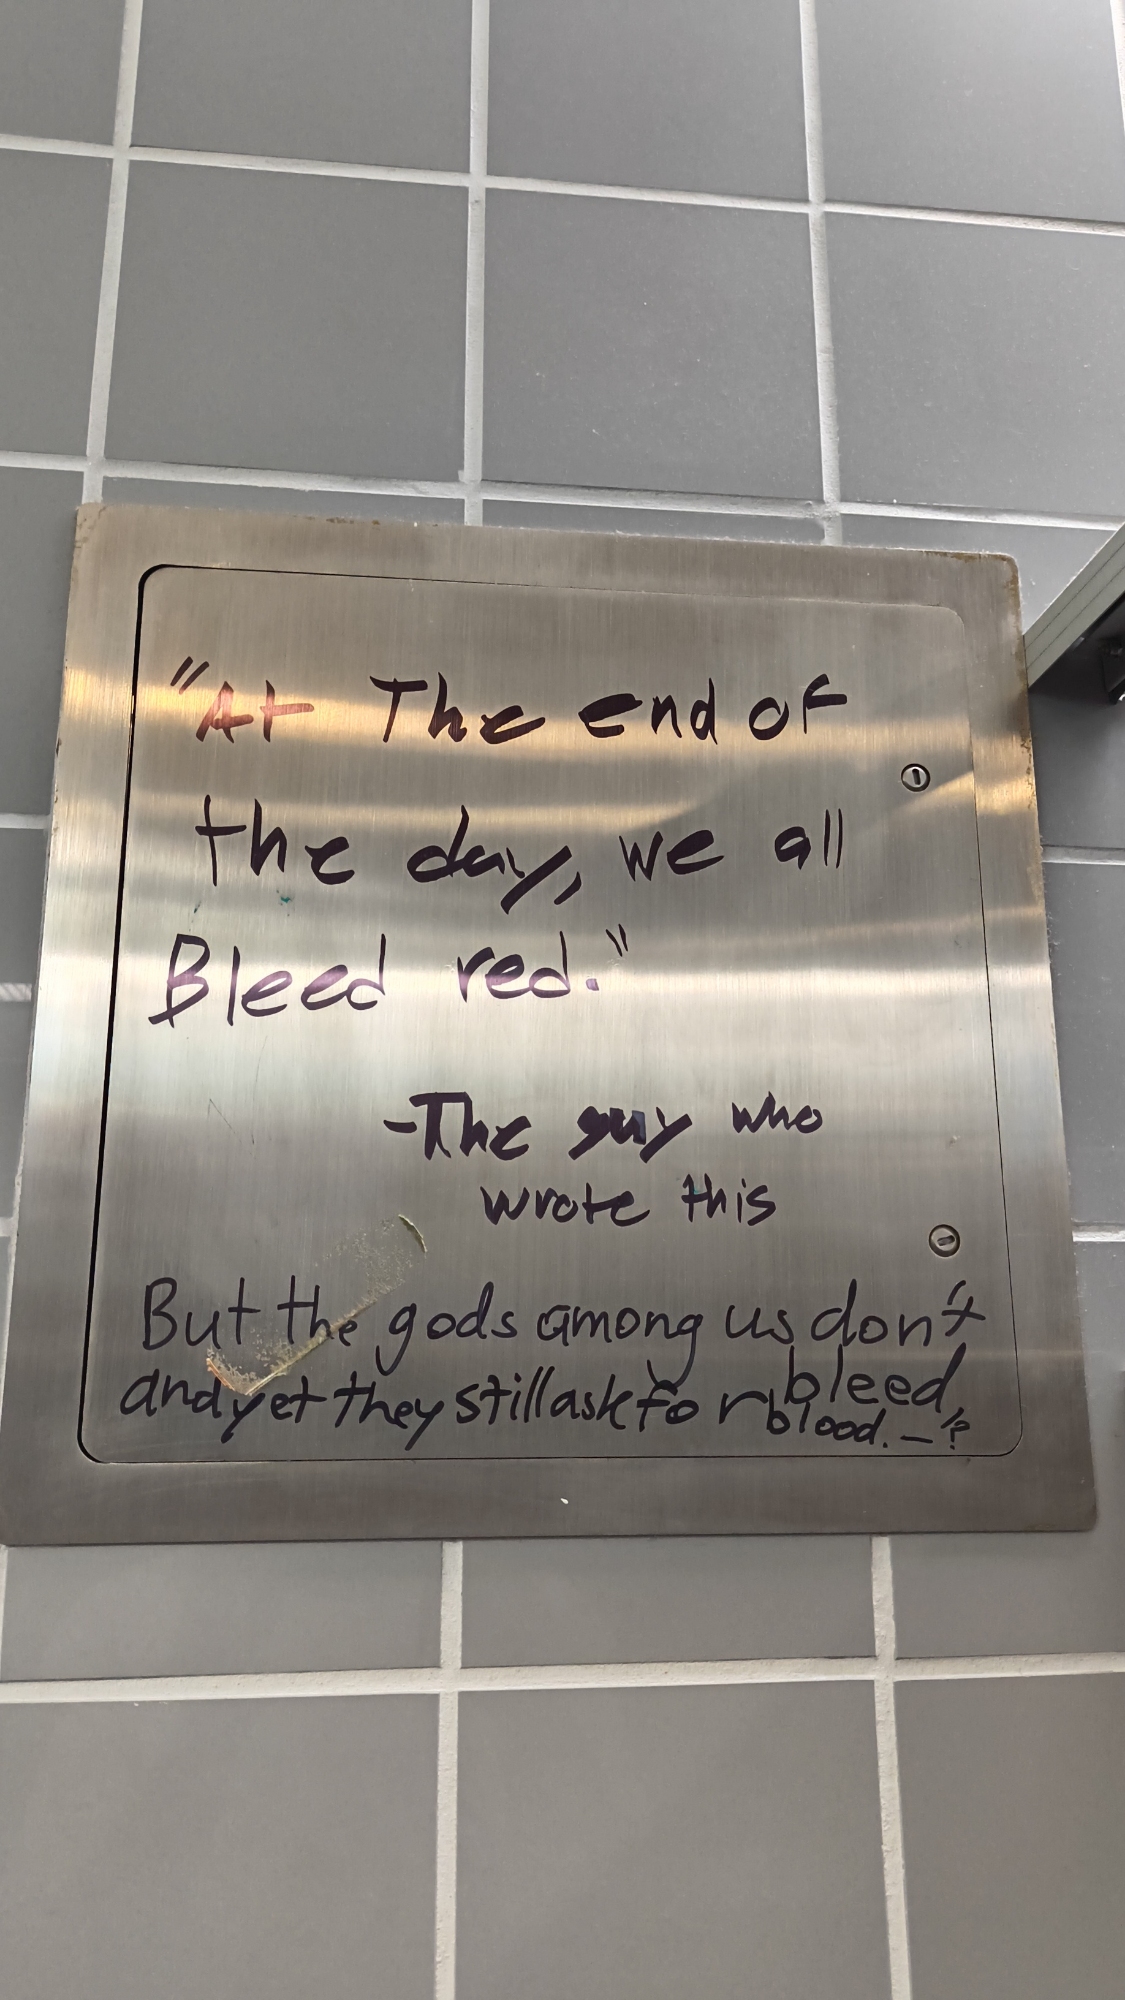 "At The end of
the day, we all
Bleed red."
-The guy who
wrote this
But the gods among us don't
bleed,
and yet they still ask for blood. -?